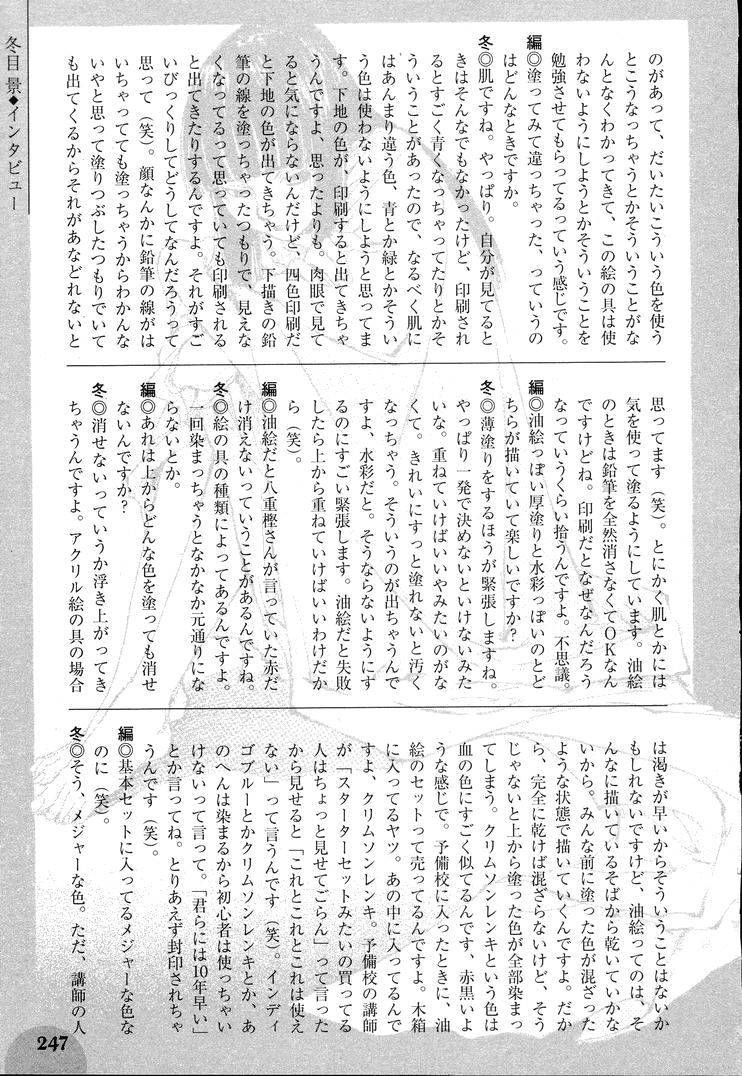 冬目 景◆インタビュー
のがあって、だいたいこういう色を使う
とこうなっちゃうとかそういうことがな
んとなくわかってきて、この絵の具は使
わないようにしようとかそういうことを
勉強させてもらってるっていう感じです。
編◎塗ってみて違っちゃった、っていうの
はどんなときですか。
冬◎肌ですね。やっぱり。自分が見てると
きはそんなでもなかったけど、印刷され
るとすごく青くなっちゃってたりとかそ
ういうことがあったので、なるべく肌に
はあんまり違う色、青とか緑とかそうい
う色は使わないようにしようと思ってま
す。下地の色が、印刷すると出てきちゃ
うんですよ、思ったよりも。肉眼で見て
ると気にならないんだけど、四色印刷だ
と下地の色が出てきちゃう。下描きの鉛
筆の線を塗っちゃったつもりで、見えな
くなってるって思っていても印刷される
と出てきたりするんですよ。それがすご
いびっくりしてどうしてなんだろうって
思って（笑）。顔なんかに鉛筆の線がは
いっちゃってても塗っちゃうからわかんな
いやと思って塗りつぶしたつもりでいて
も出てくるからそれがあなどれないと
思ってます（笑）。とにかく肌とかには
気を使って塗るようにしています。油絵
のときは鉛筆を全然消さなくてOKなん
ですけどね。印刷だとなぜなんだろう
なっていうくらい拾うんですよ。不思議。
編◎油絵っぽい厚塗りと水彩っぽいのとど
ちらが描いていて楽しいですか？
冬◎薄塗りをするほうが緊張しますね。
やっぱり一発で決めないといけないみた
いな。重ねていけばいいやみたいのがな
くて。きれいにすっと塗れないと汚く
なっちゃう。そういうのが出ちゃうんで
すよ、水彩だと。そうならないようにす
るのにすごい緊張します。油絵だと失敗
したら上から重ねていけばいいわけだか
ら（笑）。
編◎油絵だと八重樫さんが言っていた赤だ
け消えないっていうことがあるんですね。
冬◎絵の具の種類によってあるんですよ。
一回染まっちゃうとなかなか元通りにな
らないとか。
編◎あれは上からどんな色を塗っても消せ
ないんですか？
冬◎消せないっていうか浮き上がってき
ちゃうんですよ。アクリル絵の具の場合
は渇きが早いからそういうことはないか
もしれないですけど、油絵ってのは、そ
んなに描いているそばから乾いていかな
いから。みんな前に塗った色が混ざった
ような状態で描いていくんですよ。だか
ら、完全に乾けば混ざらないけど、そう
じゃないと上から塗った色が全部染まっ
てしまう。クリムソンレンキという色は
血の色にすごく似てるんです、赤黒いよ
うな感じで。予備校に入ったときに、油
絵のセットって売ってるんですよ。木箱
に入ってるヤツ。あの中に入ってるんで
すよ、クリムソンレンキ。予備校の講師
が「スターターセットみたいの買ってる
人はちょっと見せてごらん」って言った
から見せると「これとこれとこれは使え
ない」って言うんです（笑）。インディ
ゴブルーとかクリムソンレンキとか、あ
のへんは染まるから初心者は使っちゃい
けないって言って。「君らには10年早い」
とか言ってね。とりあえず封印されちゃ
うんです（笑）。
編◎基本セットに入ってるメジャーな色な
のに（笑）。
冬◎そう、メジャーな色。ただ、講師の人
247